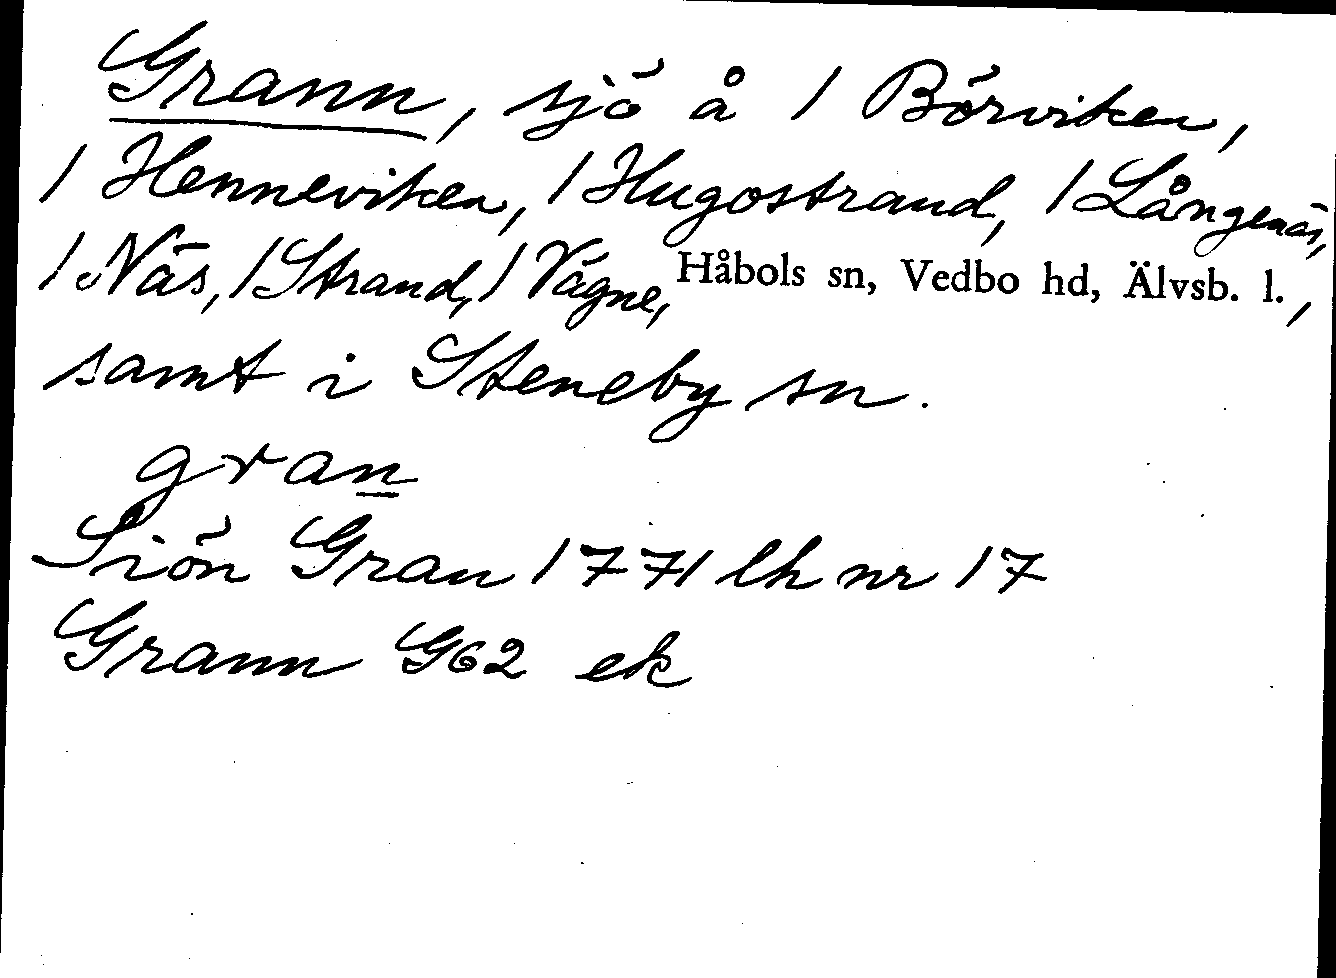 Grann, sjö å 1 Börviken,
1 Henneviken, 1 Hugostrand, 1 Långenäs,
1 Näs, 1 Strand, 1 Vägne, Håbols sn, Vedbo hd, Älvsb. l.,
samt i Steneby sn.
gran
Siön Gran 1771 lh nr 17
Grann G62 ek